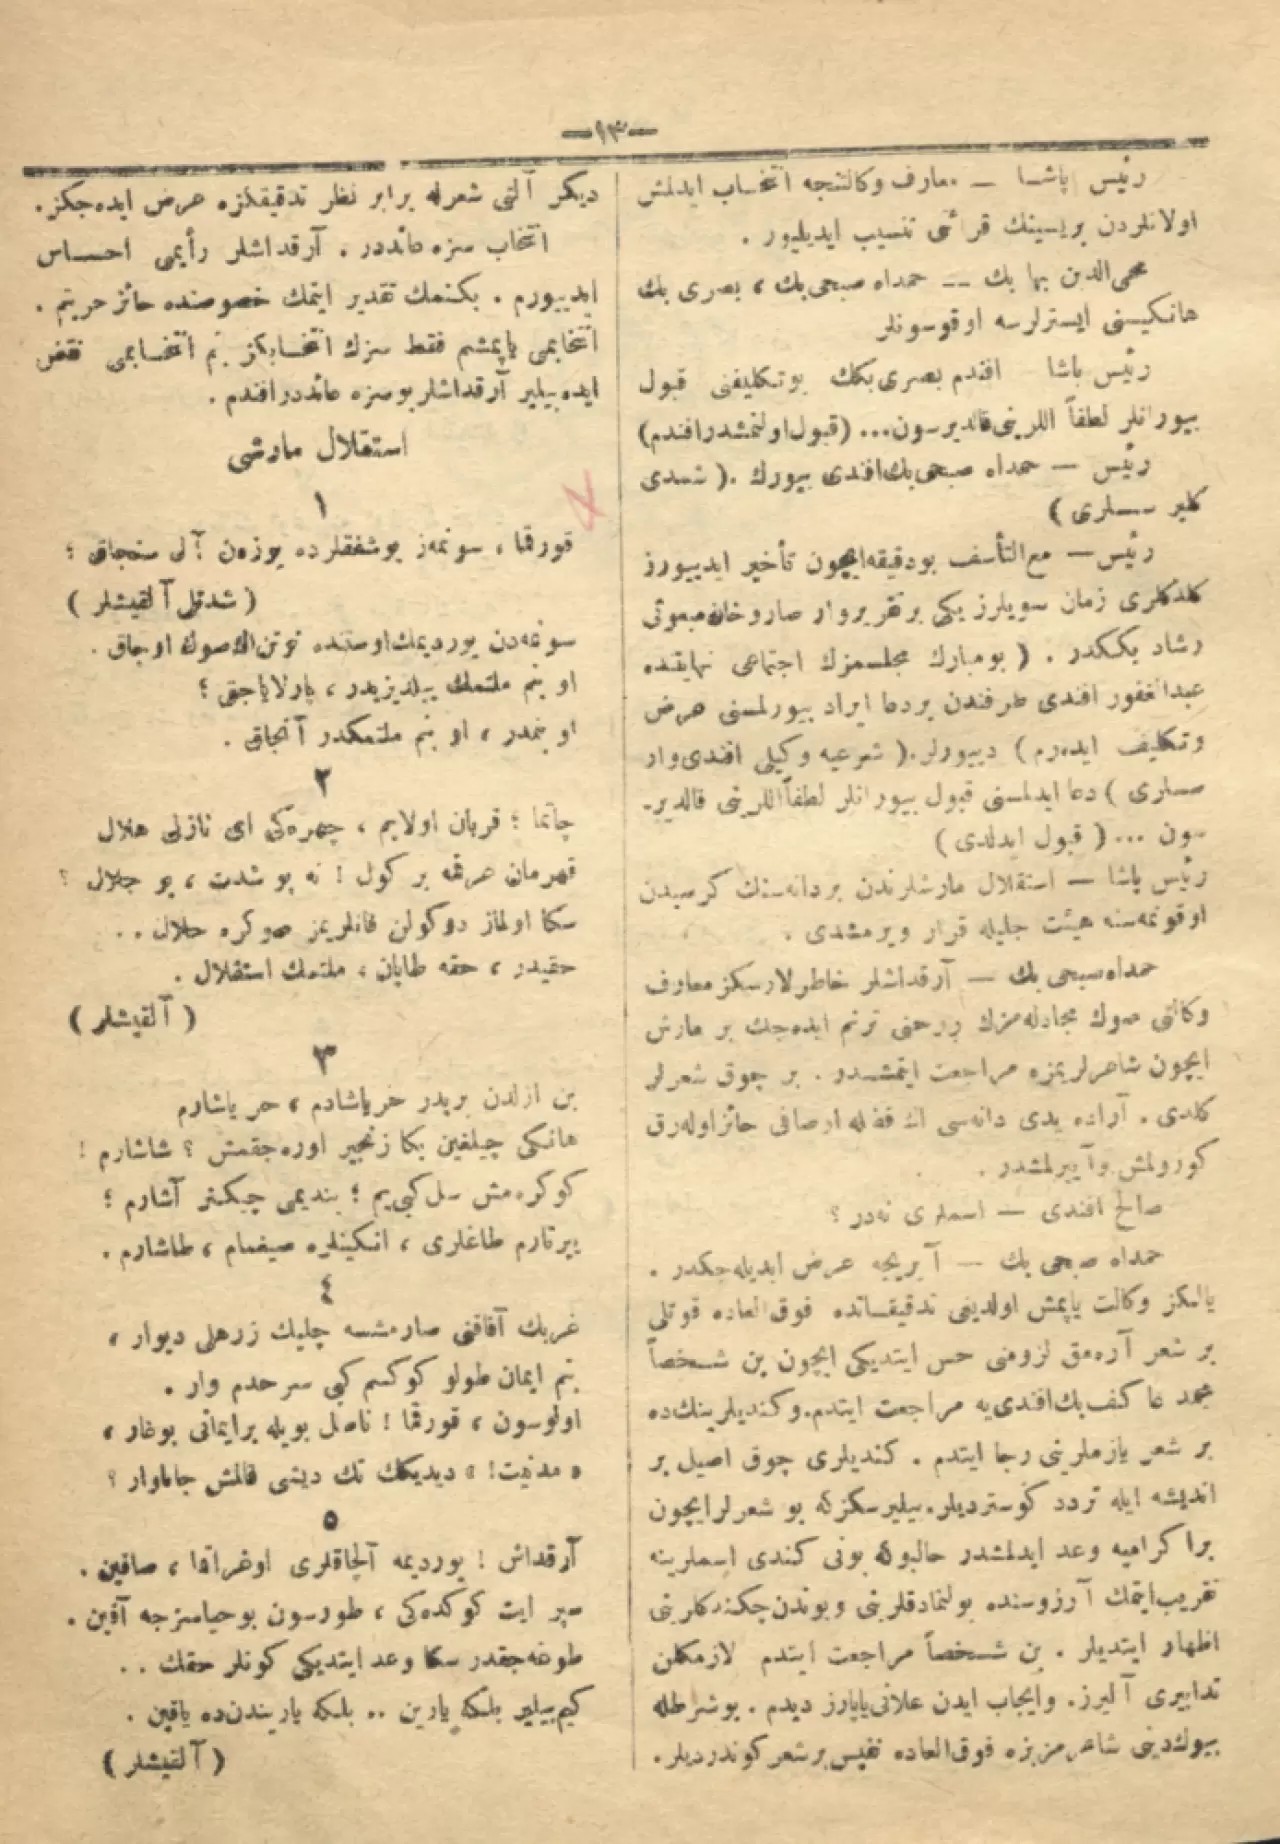 —١٣—
رئيس پاشا — معارف وكالتنجه انتخاب ايدلمش
اولانلردن بريسينك قرائتى تنسيب ايديليور .
محى الدين بها بك — حمدالله صبحى بك ، بصرى بك
هانكيسنى ايسترلرسه اوقوسونلر
رئيس پاشا افندم بصرى بكك بوتكليفنى قبول
بيورانلر لطفاً اللرينى قالديرسون... (قبول اولنمشدر افندم)
رئيس — حمدالله صبحى بك افندى بيورك .( شمدى
كلير سسلرى )
رئيس — مع التأسف بودقيقه ايچون تأخير ايدييورز
كلدكلرى زمان سويلرز يكى برتقرير وار صاروخان مبعوثى
رشاد بككدر . ( بومبارك مجلسمزك اجتماعى نهايتنده
عبدالغفور افندى طرفندن بردعا ايراد بيورلمسنى عرض
وتكليف ايدەرم ) دييورلر.( شرعيه وكيلى افندى وار
سسلرى ) دعا ايدلمسنى قبول بيورانلر لطفاً اللرينى قالدير-
سون ... ( قبول ايدلدى )
رئيس پاشا — استقلال مارشلرندن بردانەسنك كرسيدن
اوقونمەسنه هيئت جليله قرار ويرمشدى .
حمدالله صبحى بك — آرقداشلر خاطرلارسكز معارف
وكالتى صوك مجادلەمزك روحنى ترنم ايدەجك بر مارش
ايچون شاعرلريمزه مراجعت ايتمشدر . بر چوق شعرلر
كلدى . آراده يدى دانەسى اك فضله اوصافى حائز اولەرق
كورولمش وآييرلمشدر .
صالح افندى — اسملرى نەدر ؟
حمدالله صبحى بك — آيريجه عرض ايديلەجكدر .
يالكز وكالت ياپمش اولدينى تدقيقاتده فوق العاده قوتلى
بر شعر آرەمق لزومنى حس ايتديكى ايچون بن شخصاً
محمد عاكف بك افندىيه مراجعت ايتدم.وكنديلرينك ده
بر شعر يازملرينى رجا ايتدم . كنديلرى چوق اصيل بر
انديشه ايله تردد كوسترديلر.بيليرسكزكه بو شعرلر ايچون
براكراميه وعد ايدلمشدر حالبوكه بونى كندى اسملرينه
تقريب ايتمك آرزوسنده بولنمادقلرينى وبوندن چكندكلرينى
اظهار ايتديلر . بن شخصاً مراجعت ايتدم لازمكلن
تدابيرى آليرز. وايجاب ايدن علانى ياپارز ديدم . بوشرطله
بيوك دينى شاعرمزبزه فوق العاده نفيس برشعر كوندرديلر.
ديكر آلتى شعرله برابر نظر تدقيقكزه عرض ايدەجكز.
انتخاب سزه عائددر . آرقداشلر رأيمى احساس
ايدييورم . بكنمك تقدير ايتمك خصوصنده حائز حريتم .
انتخابمى ياپمشم فقط سزك انتخابكز بنم انتخابمى نقض
ايدەبيلير آرقداشلر بوسزه عائددر افندم .
استقلال مارشى
١
قورقما ، سونمەز بوشفقلرده يوزەن آل سنجاق ؛
( شدتلى آلقيشلر )
سونمەدن يورديمك اوستنده توتن اك صوك اوجاق .
او بنم ملتمك ييلديزيدر ، پارلاياجق ؛
او بنمدر ، او بنم ملتمكدر آنجاق .
٢
چاتما ؛ قربان اولايم ، چهرەكى اى نازلى هلال
قهرمان عرقمه بر كول ! نه بو شدت ، بو جلال ؟
سكا اولماز دوكولن قانلريمز صوكره حلال ..
حقيدر ، حقه طاپان ، ملتمك استقلال .
( آلقيشلر )
٣
بن ازلدن بريدر حرياشادم ، حر ياشارم
هانكى چيلغين بكا زنجير اورەجقمش ؟ شاشارم !
كوكرەمش سل كبىيم ؛ بنديمى چيكنر آشارم ؛
ييرتارم طاغلرى ، انكينلره صيغمام ، طاشارم .
٤
غربك آفاقنى صارمشسه چليك زرهلى ديوار ،
بنم ايمان طولو كوكسم كبى سرحدم وار .
اولوسون ، قورقما ! ناصل بويله برايمانى بوغار ،
« مدنيت! » ديديكك تك ديشى قالمش جاناوار ؟
٥
آرقداش ! يورديمه آلچاقلرى اوغراتما ، صاقين .
سپر ايت كوكدەكى ، طورسون بوحياسزجه آقين .
طوغەجقدر سكا وعد ايتديكى كونلر حقك ..
كيم بيلير بلكه يارين .. بلكه ياريندن ده ياقين .
( آلقيشلر )